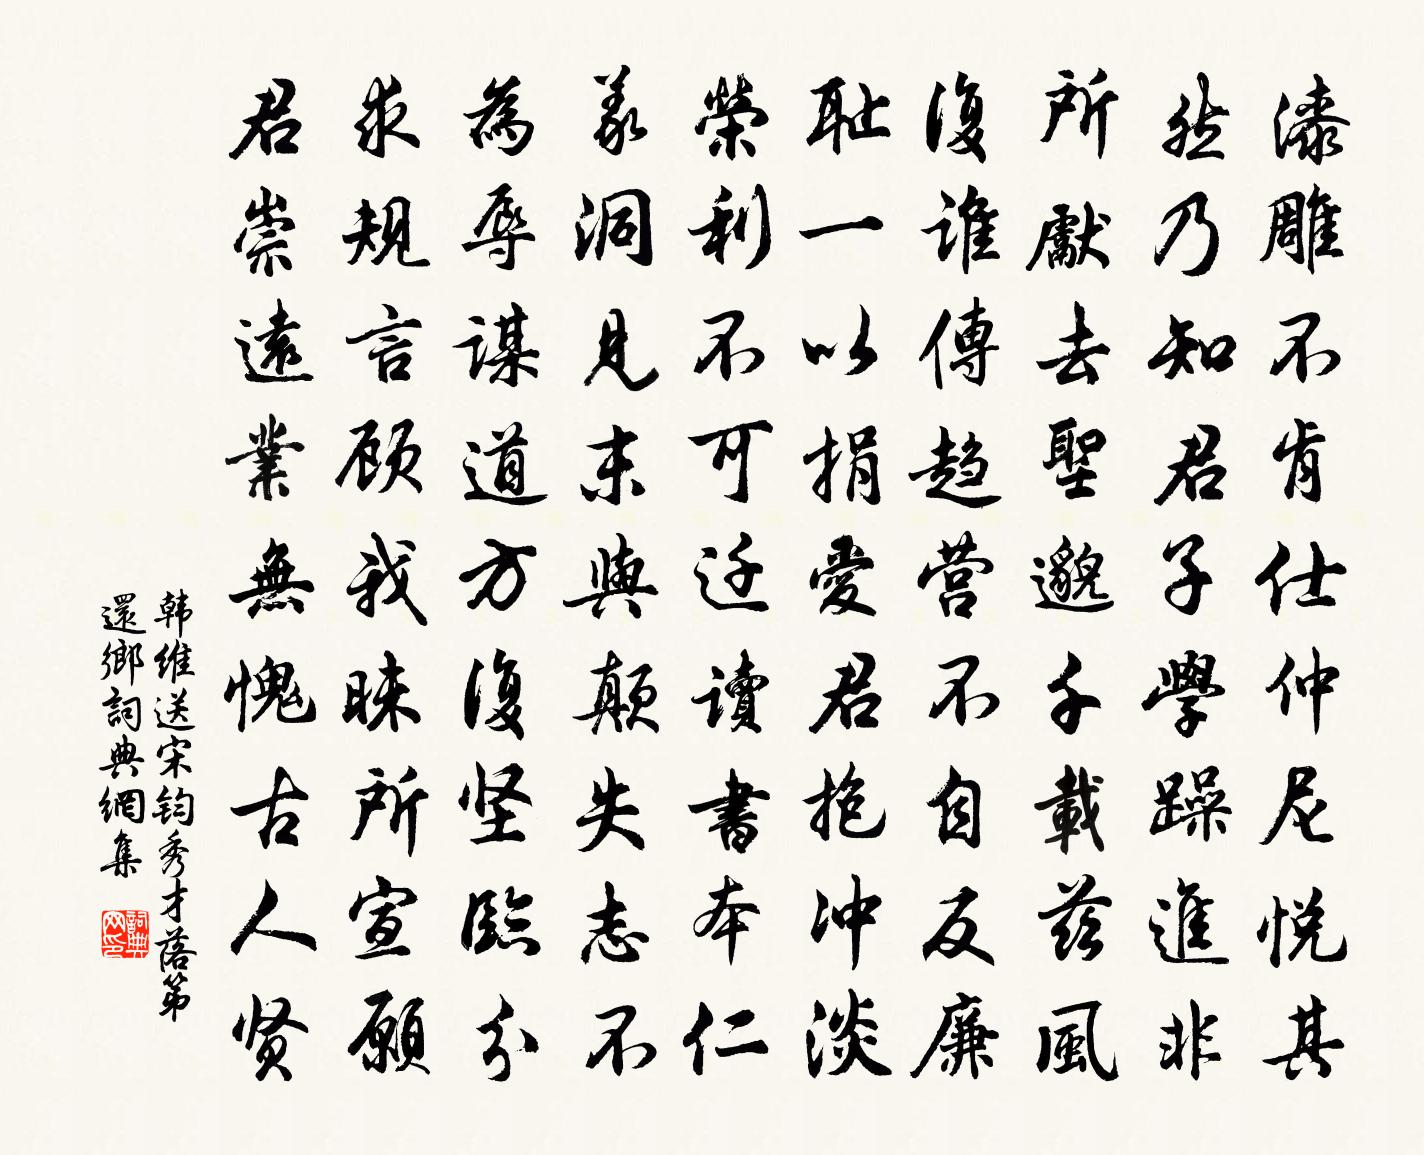 漆雕不肯仕仲尼悦其
然乃知君子學躁進非
所獻去聖邈千載茲風
復谁傳趋营不自反廉
耻一以捐愛君抱沖淡
榮利不可迁讀書本仁
義洞見末與颠失志不
為辱謀道方復坚臨分
求規言顾我昧所宣願
君崇遠業無愧古人贤
韩維送宋钧秀才落第
還鄉詞典網集
詞典网印